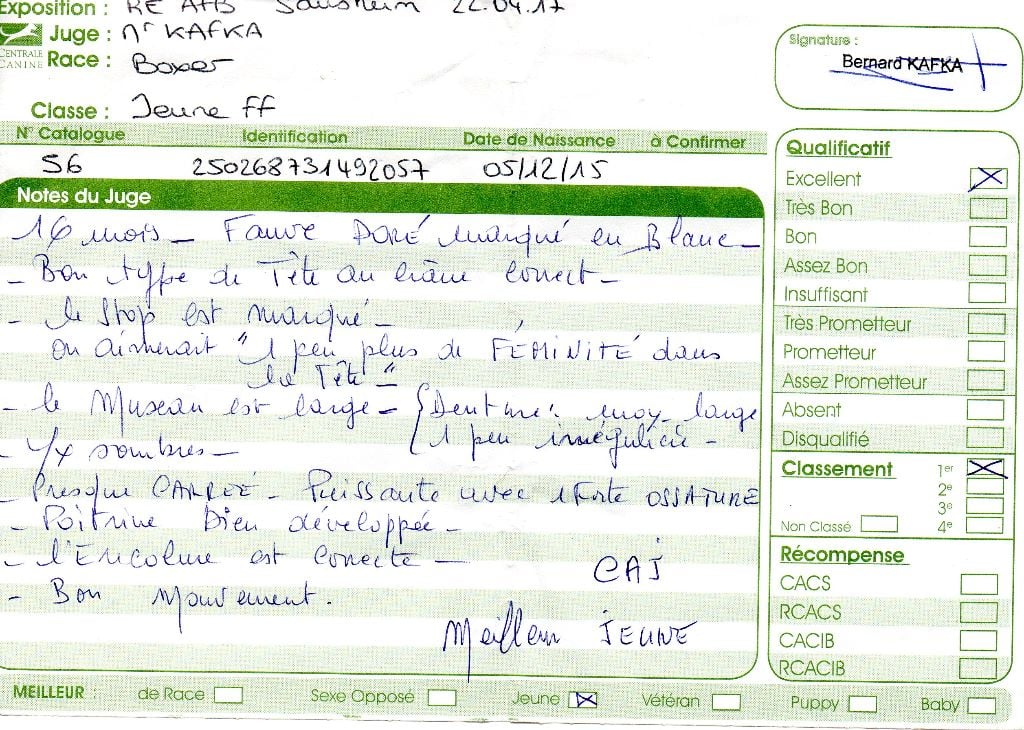 Exposition : RE AFB Sausheim 22.04.17
Juge : Mr KAFKA
CENTRALE CANINE
Race : Boxer
Classe : Jeune FF
Signature :
Bernard KAFKA
N° Catalogue Identification Date de Naissance à Confirmer
56 250268731492057 05/12/15
Notes du Juge
16 mois - Fauve DORÉ marqué en Blanc -
- Bon type de Tête au crâne correct -
- le Stop est marqué -
on aimerait "1 peu plus de FEMINITÉ dans
la Tête" -
- le Museau est large - { Denture : moy large
1 peu irrégulière -
- Yx sombres -
- Presque CARRÉE - Puissante avec 1 forte OSSATURE
- Poitrine bien développée -
- l'Encolure est correcte -
- Bon mouvement.
CAJ
Meilleur JEUNE
Qualificatif
Excellent
Très Bon
Bon
Assez Bon
Insuffisant
Très Prometteur
Prometteur
Assez Prometteur
Absent
Disqualifié
Classement 1er
2e
3e
Non Classé 4e
Récompense
CACS
RCACS
CACIB
RCACIB
MEILLEUR : de Race Sexe Opposé Jeune Vétéran Puppy Baby